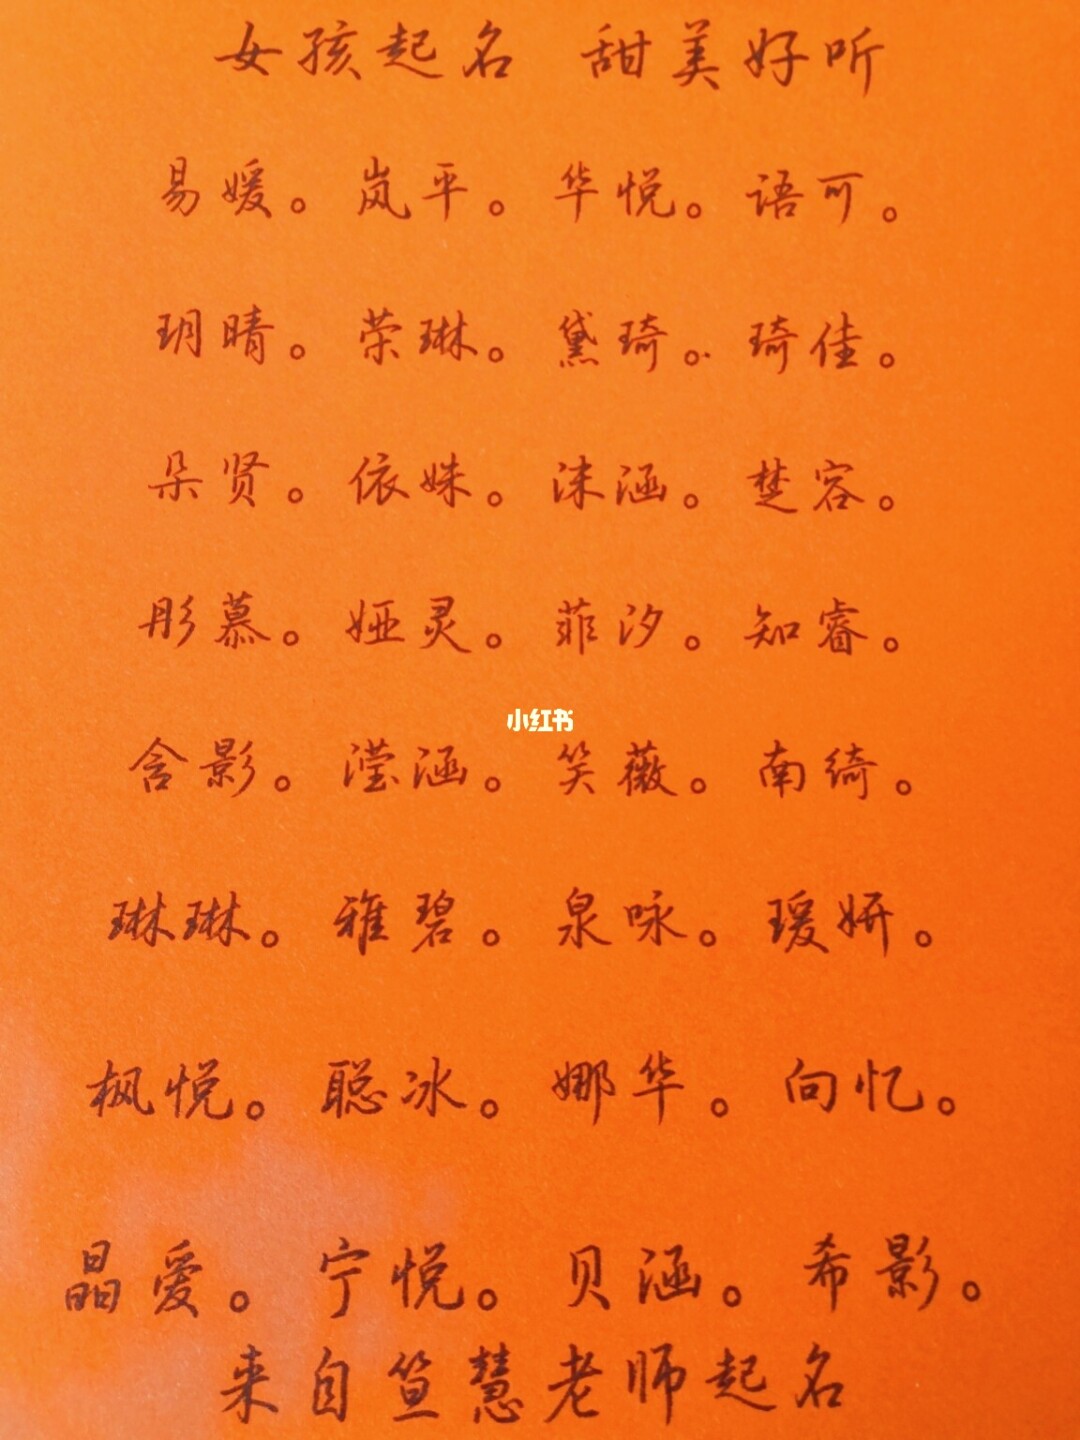 女孩起名 甜美好听
易媛。岚平。华悦。语可。
玥晴。荣琳。黛琦。琦佳。
朵贤。依姝。沫涵。楚容。
彤慕。娅灵。菲汐。知睿。
小红书
含影。滢涵。笑薇。南绮。
琳琳。雅碧。泉咏。瑷妍。
枫悦。聪冰。娜华。向忆。
晶爱。宁悦。贝涵。希影。
来自笪慧老师起名